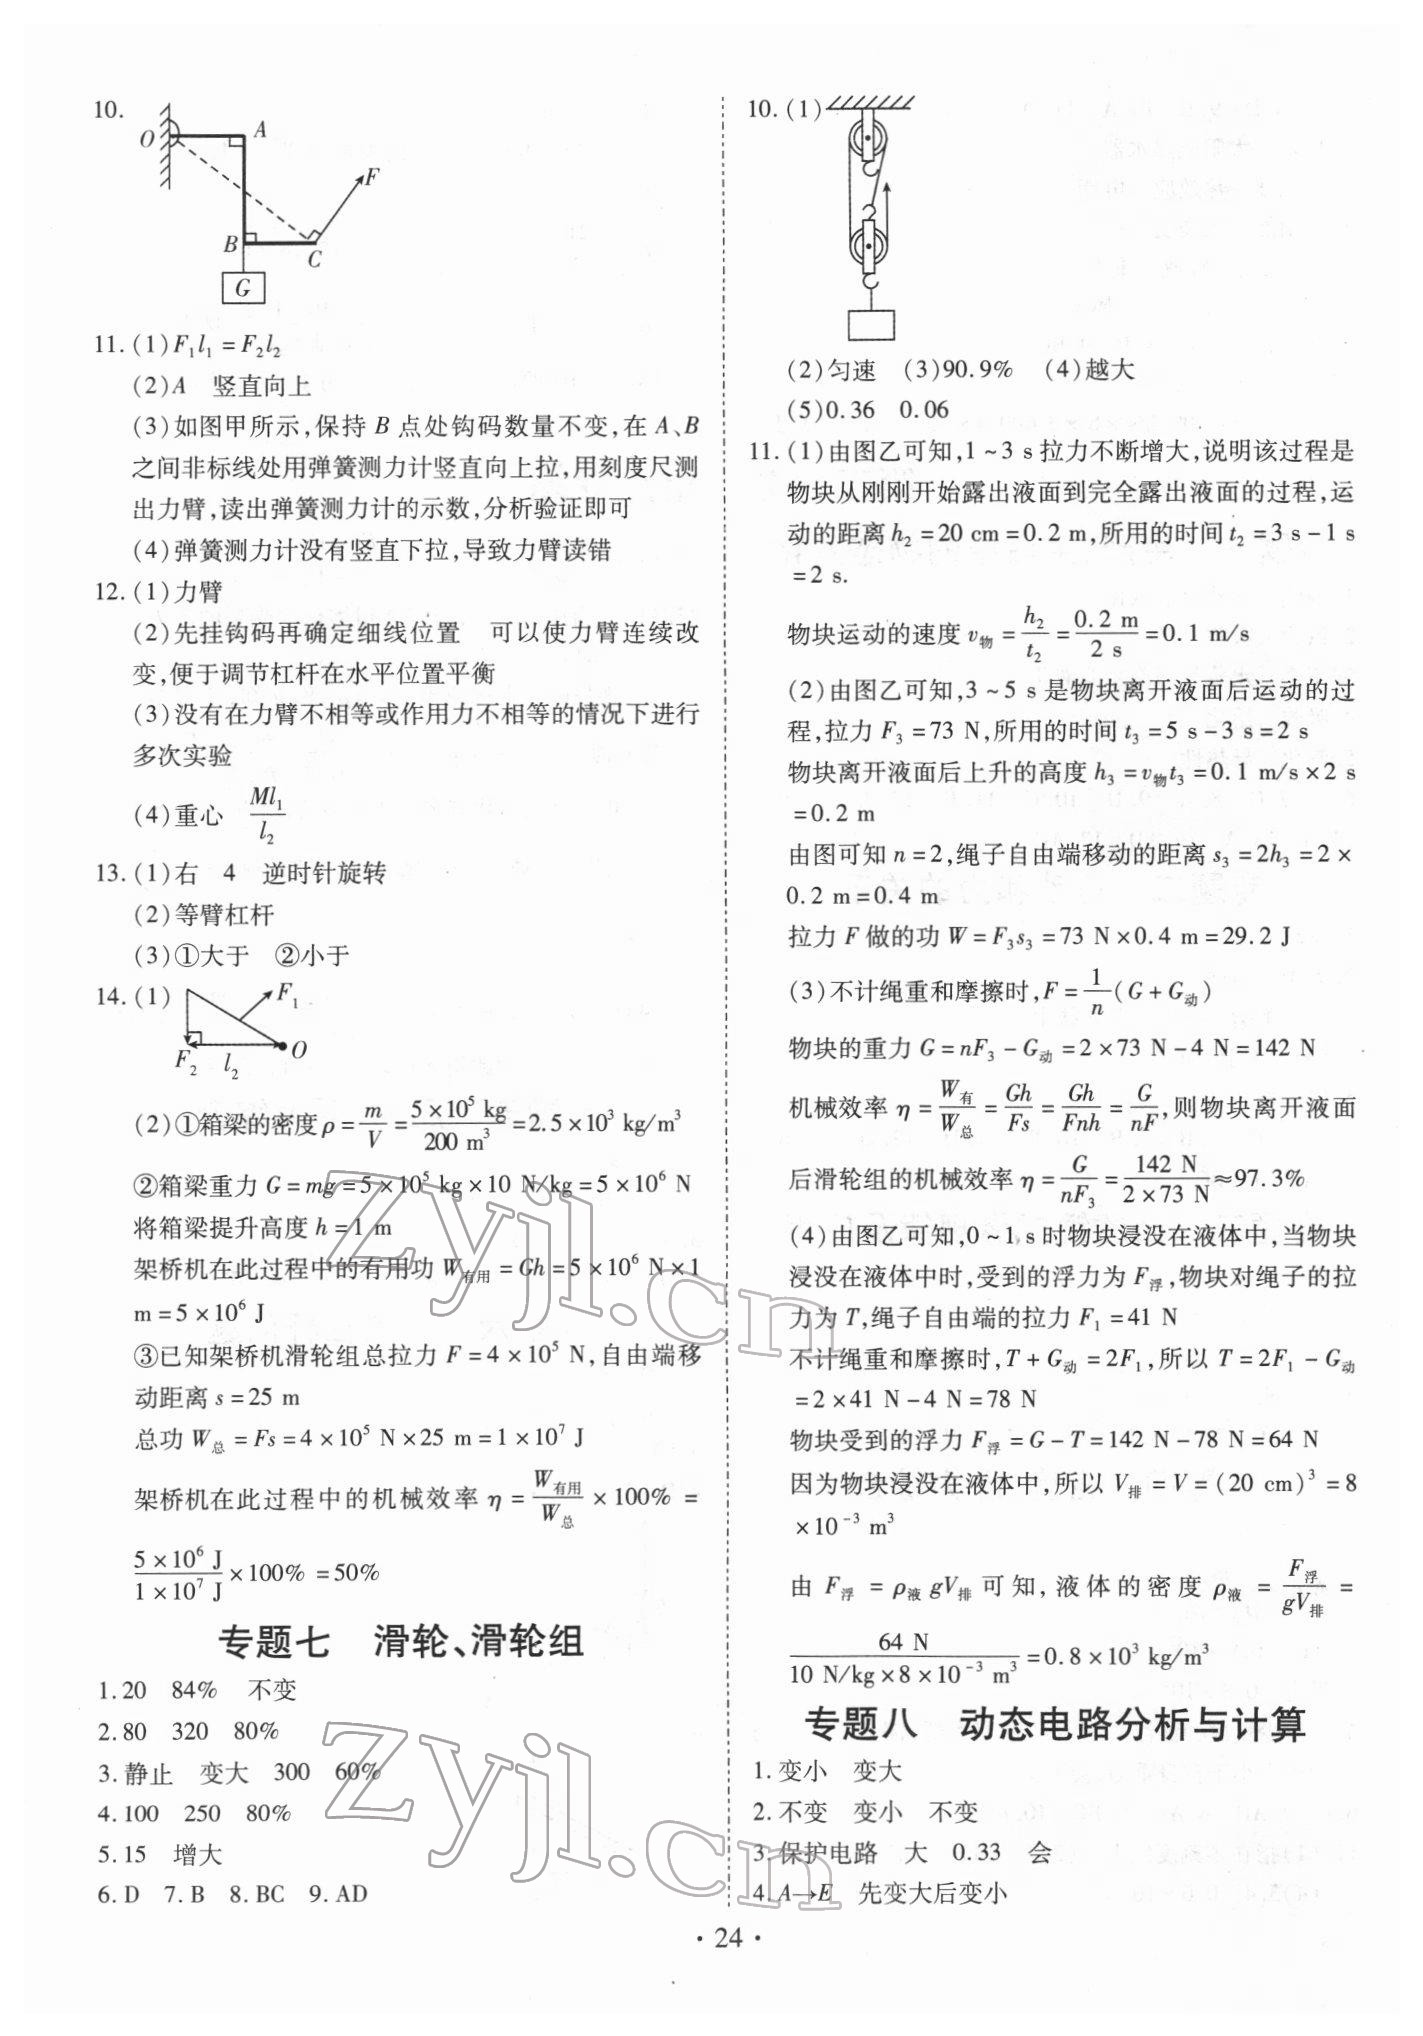 10.
O A F B C G
11. (1)F₁l₁ = F₂l₂
(2)A 竖直向上
(3)如图甲所示,保持 B 点处钩码数量不变,在 A、B
之间非标线处用弹簧测力计竖直向上拉,用刻度尺测
出力臂,读出弹簧测力计的示数,分析验证即可
(4)弹簧测力计没有竖直下拉,导致力臂读错
12. (1)力臂
(2)先挂钩码再确定细线位置 可以使力臂连续改
变,便于调节杠杆在水平位置平衡
(3)没有在力臂不相等或作用力不相等的情况下进行
多次实验
(4)重心 Ml₁/l₂
13. (1)右 4 逆时针旋转
(2)等臂杠杆
(3)①大于 ②小于
14. (1) F₁ F₂ l₂ O
(2)①箱梁的密度 ρ = m/V = 5×10⁵ kg/200 m³ = 2.5×10³ kg/m³
②箱梁重力 G = mg = 5×10⁵ kg×10 N/kg = 5×10⁶ N
将箱梁提升高度 h = 1 m
架桥机在此过程中的有用功 W有用 = Gh = 5×10⁶ N×1
m = 5×10⁶ J
③已知架桥机滑轮组总拉力 F = 4×10⁵ N,自由端移
动距离 s = 25 m
总功 W总 = Fs = 4×10⁵ N×25 m = 1×10⁷ J
架桥机在此过程中的机械效率 η = W有用/W总 ×100% =
5×10⁶ J/1×10⁷ J ×100% = 50%
专题七 滑轮、滑轮组
1. 20 84% 不变
2. 80 320 80%
3. 静止 变大 300 60%
4. 100 250 80%
5. 15 增大
6. D 7. B 8. BC 9. AD
10. (1)
(2)匀速 (3)90.9% (4)越大
(5)0.36 0.06
11. (1)由图乙可知,1~3 s 拉力不断增大,说明该过程是
物块从刚刚开始露出液面到完全露出液面的过程,运
动的距离 h₂ = 20 cm = 0.2 m,所用的时间 t₂ = 3 s - 1 s
= 2 s.
物块运动的速度 v物 = h₂/t₂ = 0.2 m/2 s = 0.1 m/s
(2)由图乙可知,3~5 s 是物块离开液面后运动的过
程,拉力 F₃ = 73 N,所用的时间 t₃ = 5 s - 3 s = 2 s
物块离开液面后上升的高度 h₃ = v物t₃ = 0.1 m/s×2 s
= 0.2 m
由图可知 n = 2,绳子自由端移动的距离 s₃ = 2h₃ = 2×
0.2 m = 0.4 m
拉力 F 做的功 W = F₃s₃ = 73 N×0.4 m = 29.2 J
(3)不计绳重和摩擦时,F = 1/n (G + G动)
物块的重力 G = nF₃ - G动 = 2×73 N - 4 N = 142 N
机械效率 η = W有/W总 = Gh/Fs = Gh/Fnh = G/nF,则物块离开液面
后滑轮组的机械效率 η = G/nF₃ = 142 N/2×73 N ≈ 97.3%
(4)由图乙可知,0~1 s 时物块浸没在液体中,当物块
浸没在液体中时,受到的浮力为 F浮,物块对绳子的拉
力为 T,绳子自由端的拉力 F₁ = 41 N
不计绳重和摩擦时,T + G动 = 2F₁,所以 T = 2F₁ - G动
= 2×41 N - 4 N = 78 N
物块受到的浮力 F浮 = G - T = 142 N - 78 N = 64 N
因为物块浸没在液体中,所以 V排 = V = (20 cm)³ = 8
×10⁻³ m³
由 F浮 = ρ液 gV排 可知,液体的密度 ρ液 = F浮/gV排 =
64 N/10 N/kg×8×10⁻³ m³ = 0.8×10³ kg/m³
专题八 动态电路分析与计算
1. 变小 变大
2. 不变 变小 不变
3. 保护电路 大 0.33 会
4. A→E 先变大后变小
· 24 ·
zyjl.cn
zyjl.cn